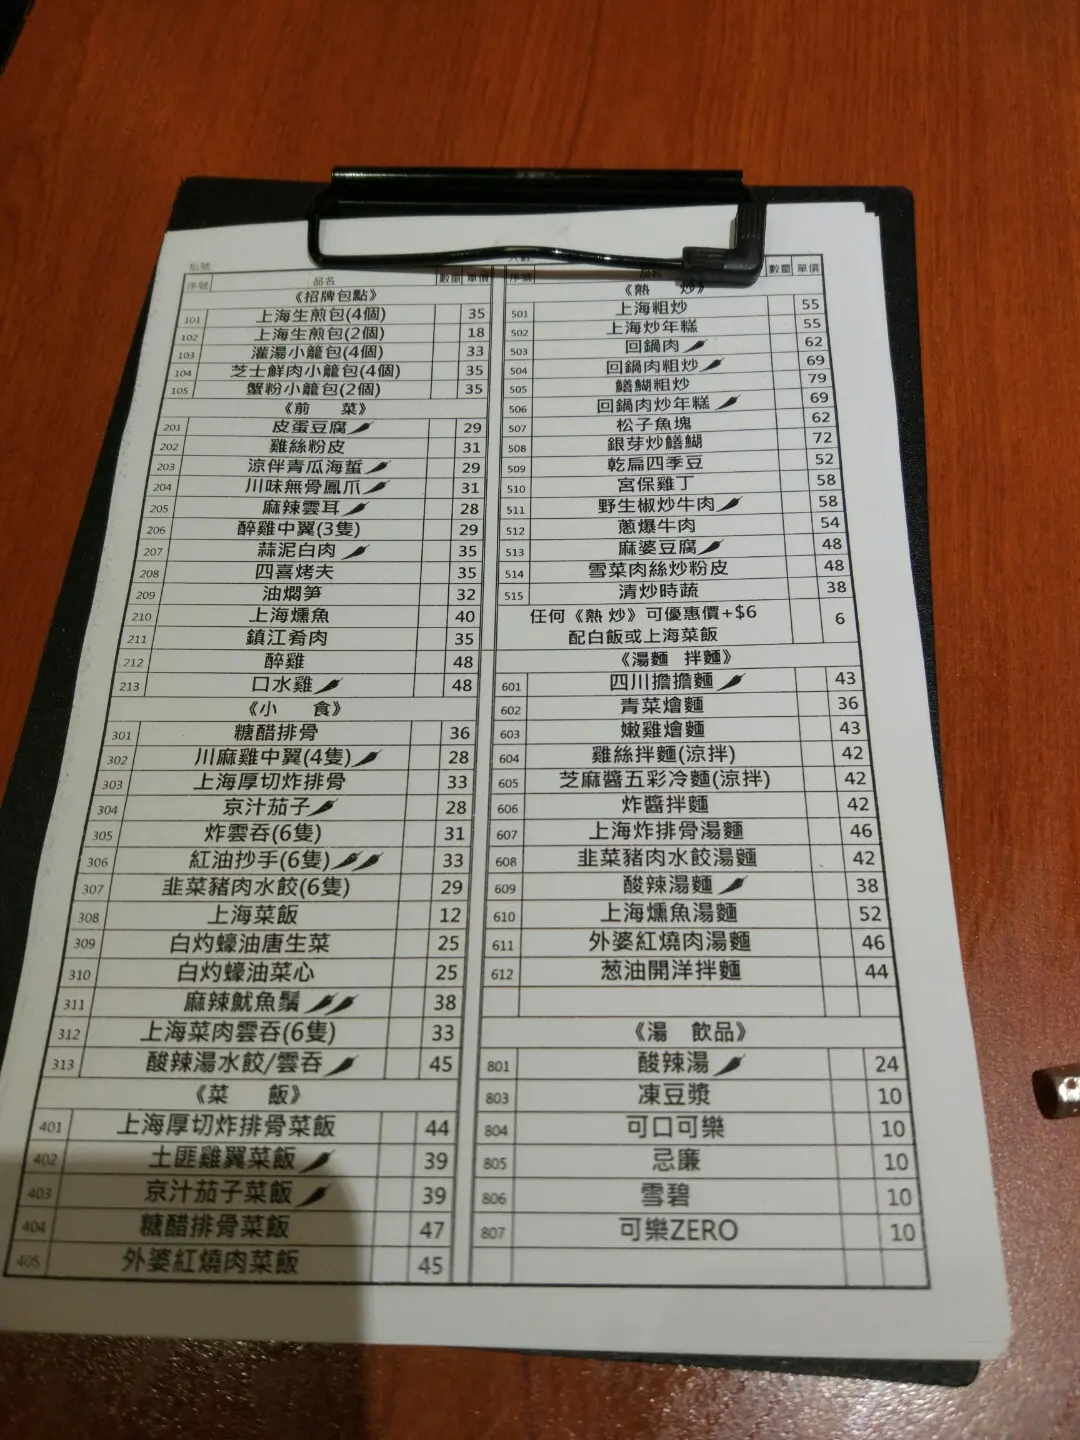 枱號
序號 品名 數量 單價
《招牌包點》
101 上海生煎包(4個) 35
102 上海生煎包(2個) 18
103 灌湯小籠包(4個) 33
104 芝士鮮肉小籠包(4個) 35
105 蟹粉小籠包(2個) 35
《前 菜》
201 皮蛋豆腐 29
202 雞絲粉皮 31
203 涼伴青瓜海蜇 29
204 川味無骨鳳爪 31
205 麻辣雲耳 28
206 醉雞中翼(3隻) 29
207 蒜泥白肉 35
208 四喜烤夫 35
209 油燜笋 32
210 上海燻魚 40
211 鎮江肴肉 35
212 醉雞 48
213 口水雞 48
《小 食》
301 糖醋排骨 36
302 川麻雞中翼(4隻) 28
303 上海厚切炸排骨 33
304 京汁茄子 28
305 炸雲吞(6隻) 31
306 紅油抄手(6隻) 33
307 韭菜豬肉水餃(6隻) 29
308 上海菜飯 12
309 白灼蠔油唐生菜 25
310 白灼蠔油菜心 25
311 麻辣魷魚鬚 38
312 上海菜肉雲吞(6隻) 33
313 酸辣湯水餃/雲吞 45
《菜 飯》
401 上海厚切炸排骨菜飯 44
402 土匪雞翼菜飯 39
403 京汁茄子菜飯 39
404 糖醋排骨菜飯 47
405 外婆紅燒肉菜飯 45
序號 品名 數量 單價
《熱 炒》
501 上海粗炒 55
502 上海炒年糕 55
503 回鍋肉 62
504 回鍋肉粗炒 69
505 鱔鰗粗炒 79
506 回鍋肉炒年糕 69
507 松子魚塊 62
508 銀芽炒鱔鰗 72
509 乾扁四季豆 52
510 宮保雞丁 58
511 野生椒炒牛肉 58
512 蔥爆牛肉 54
513 麻婆豆腐 48
514 雪菜肉絲炒粉皮 48
515 清炒時蔬 38
任何《熱 炒》可優惠價+$6 6
配白飯或上海菜飯
《湯麵 拌麵》
601 四川擔擔麵 43
602 青菜燴麵 36
603 嫩雞燴麵 43
604 雞絲拌麵(涼拌) 42
605 芝麻醬五彩冷麵(涼拌) 42
606 炸醬拌麵 42
607 上海炸排骨湯麵 46
608 韭菜豬肉水餃湯麵 42
609 酸辣湯麵 38
610 上海燻魚湯麵 52
611 外婆紅燒肉湯麵 46
612 葱油開洋拌麵 44
《湯 飲品》
801 酸辣湯 24
803 凍豆漿 10
804 可口可樂 10
805 忌廉 10
806 雪碧 10
807 可樂ZERO 10